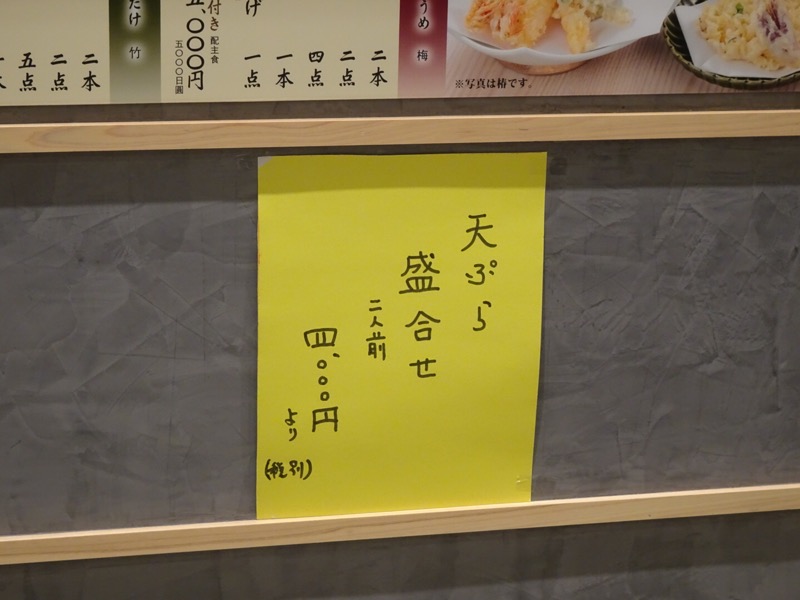 うめ 梅
※写真は椿です。
二本
二点
四点
一本
一点
げ
付き 配主食
五、〇〇〇円
五〇〇〇日圓
たけ 竹
二本
二点
五点
天ぷら
盛合せ
二人前
四、〇〇〇円
より
(税別)